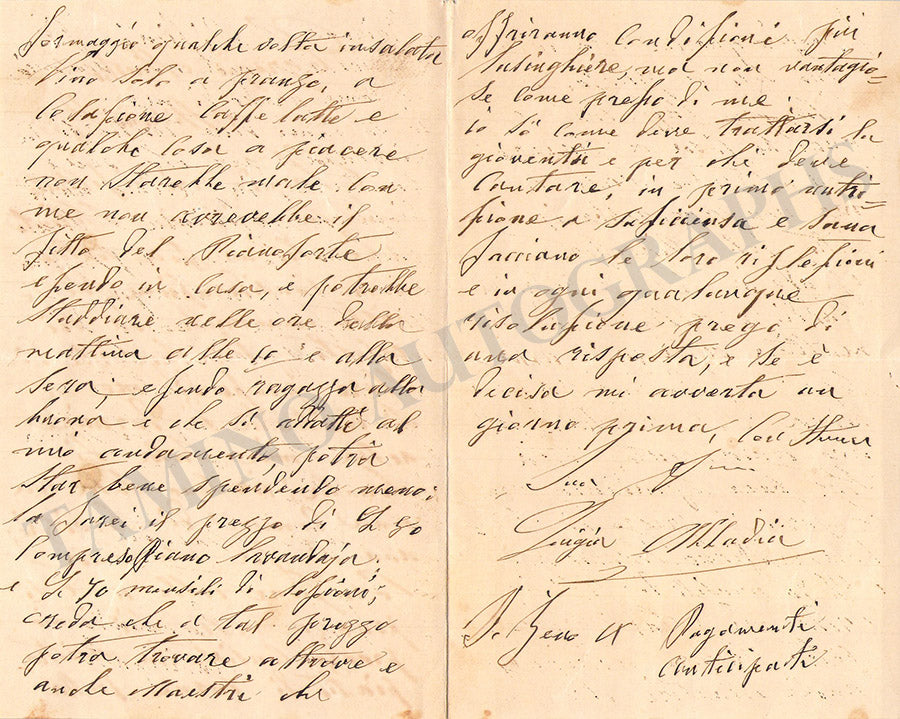 formaggio qualche volta insalata
vino solo a pranzo, a
Colazione Caffe latte e
qualche cosa a piacere
non Starebbe male con
me non avrebbe il
fitto del Pianoforte
essendo in casa, e potrebbe
Studdiare nelle ore dalla
mattina alle 10 e alla
sera; essendo ragazza alla
buona e che si adatti al
mio andamento, potrà
Star bene spendendo meno;
la farei il prezzo di
Compreso Piano lavandaja
e £ 70 mensili di lezioni;
creda che a tal prezzo
potrà trovare altrove e
anche Maestri che
offriranno Condizioni più
lusinghiere, ma non vantagio=
se come presso di me.
io sò come deve trattarsi la
gioventù e per chi deve
Cantare, in primo nutri=
zione a Suficienza e Sana
facciano le loro riflessioni
e in ogni qualunque
risoluzione prego di
una risposta, e se è
decisa mi avverta un
giorno prima, Con Stima
Sua
Luigia Abbadia
Pagamenti
anticipati
TAMINO AUTOGRAPHS